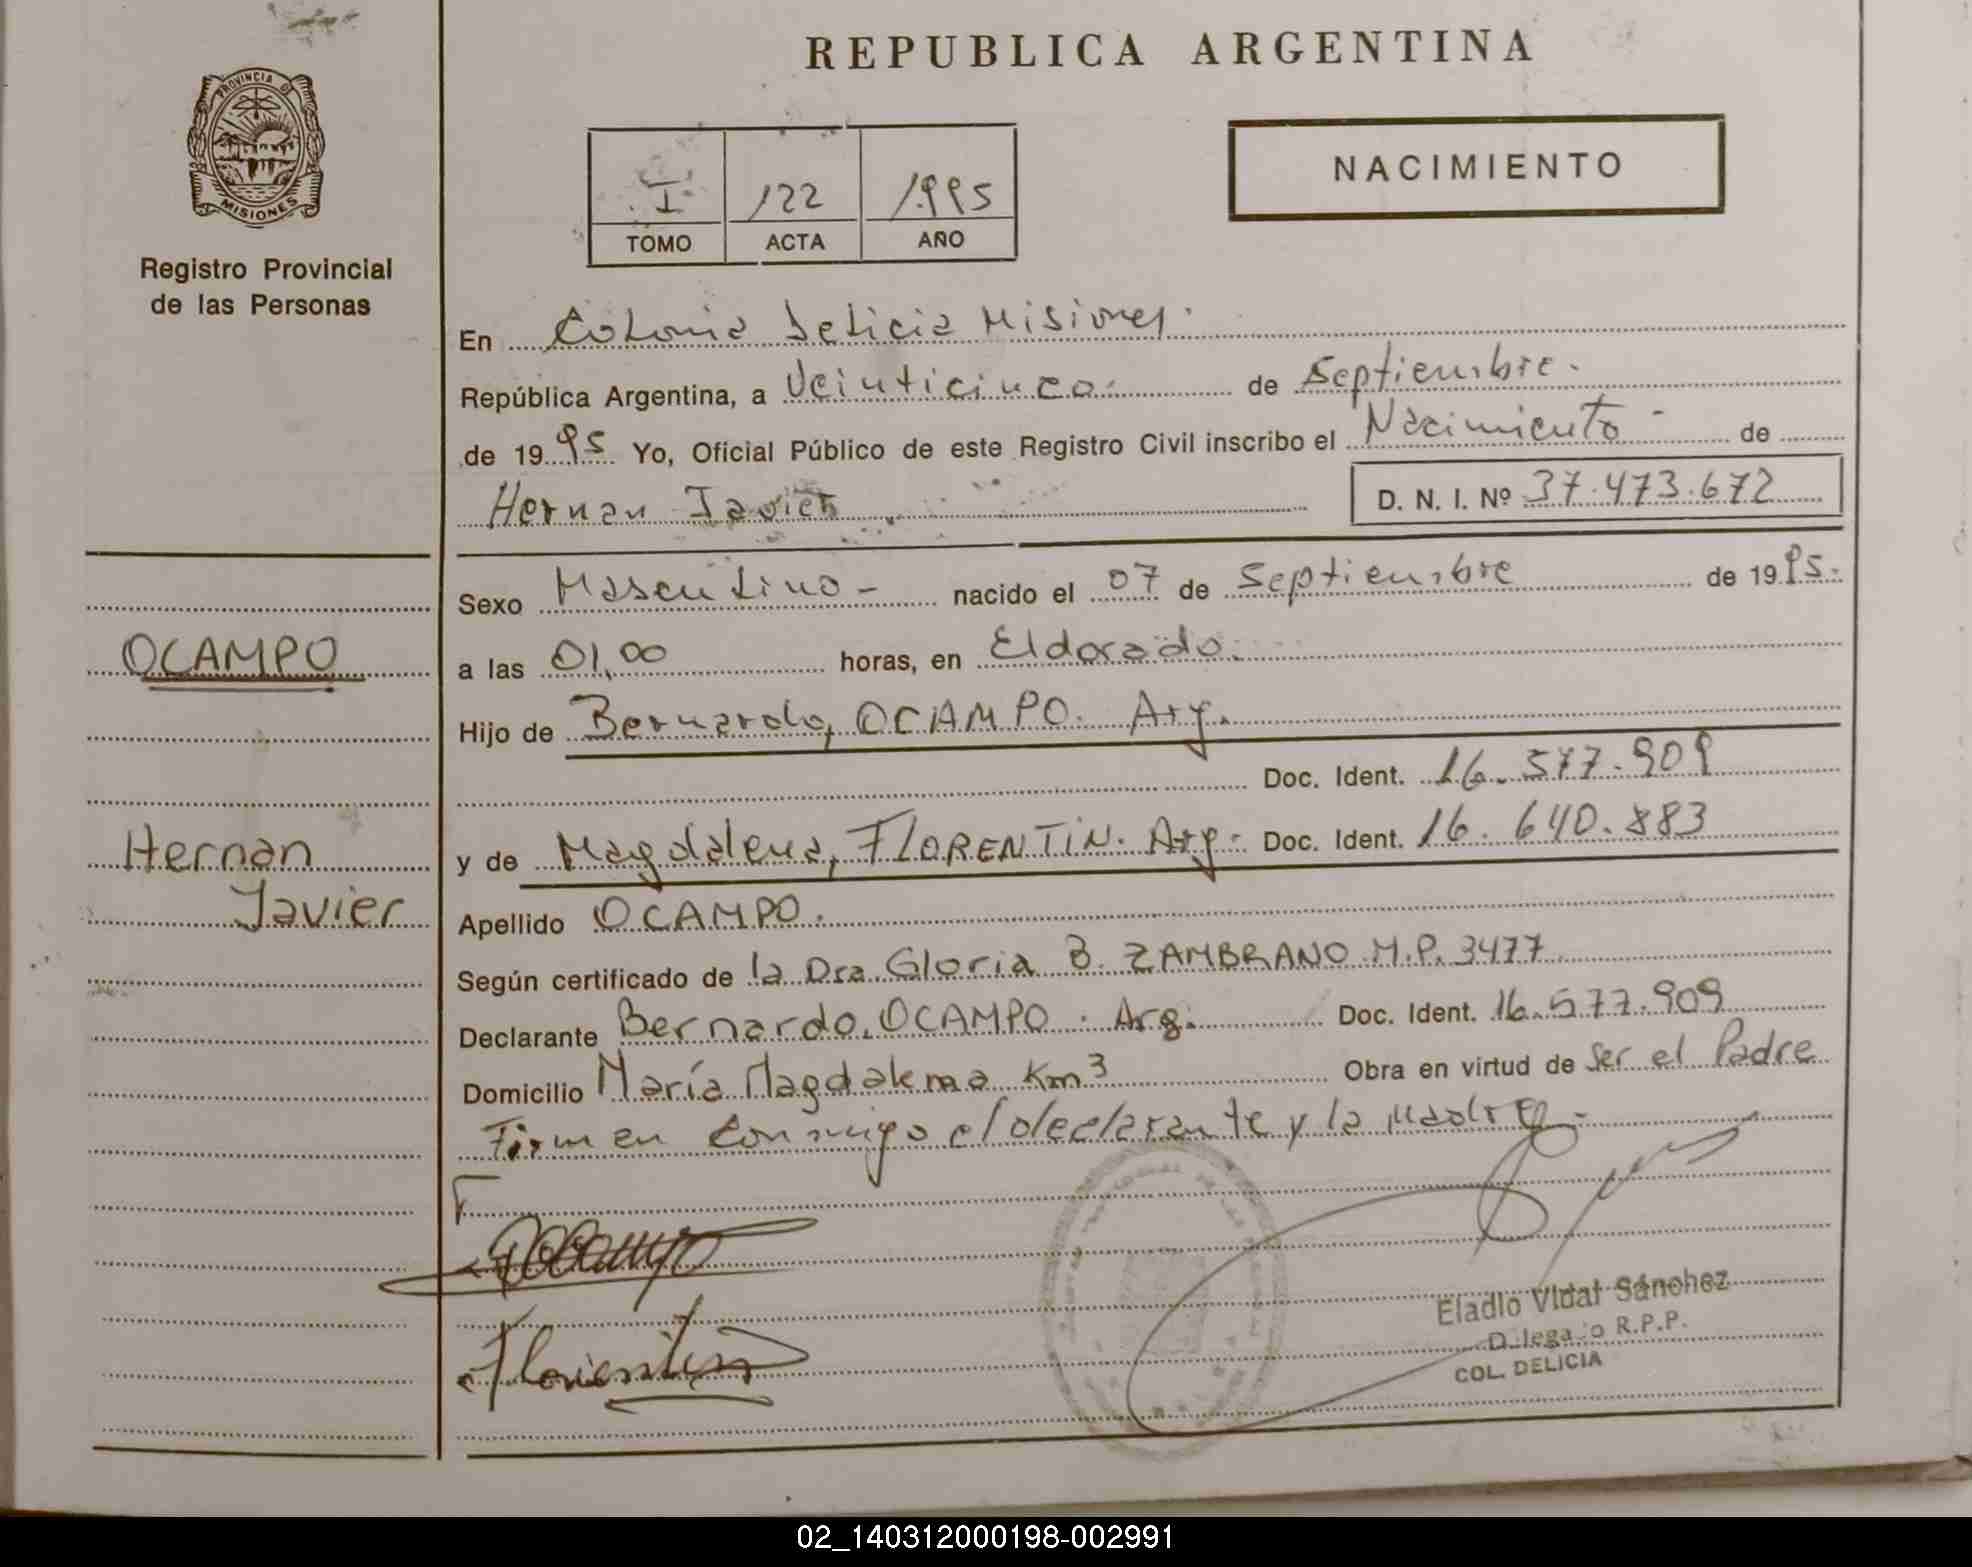 REPUBLICA ARGENTINA
PROVINCIA D
MISIONES
Registro Provincial
de las Personas
NACIMIENTO
I 122 1995
TOMO ACTA AÑO
En Colonia Delicia Misiones.
República Argentina, a Veinticinco. de Septiembre.
de 1995 Yo, Oficial Público de este Registro Civil inscribo el Nacimiento - de
Hernan Javier D. N. I. Nº 37.473.672
Sexo Masculino - nacido el 07 de Septiembre de 1995.
OCAMPO
a las 01,00 horas, en Eldorado.
Hijo de Bernardo, OCAMPO. Arg.
Doc. Ident. 16.577.909
Hernan
y de Magdalena, FLORENTIN. Arg. Doc. Ident. 16.640.883
Javier
Apellido OCAMPO.
Según certificado de la Dra. Gloria B. ZAMBRANO M.P. 3477
Declarante Bernardo, OCAMPO. Arg. Doc. Ident. 16.577.909
Domicilio María Magdalena Km 3 Obra en virtud de Ser el Padre
Firman conmigo el declarante y la Madre.-
Florentin
Eladio Vidal Sánchez
R.P.P.
COL. DELICIA
02_140312000198-002991